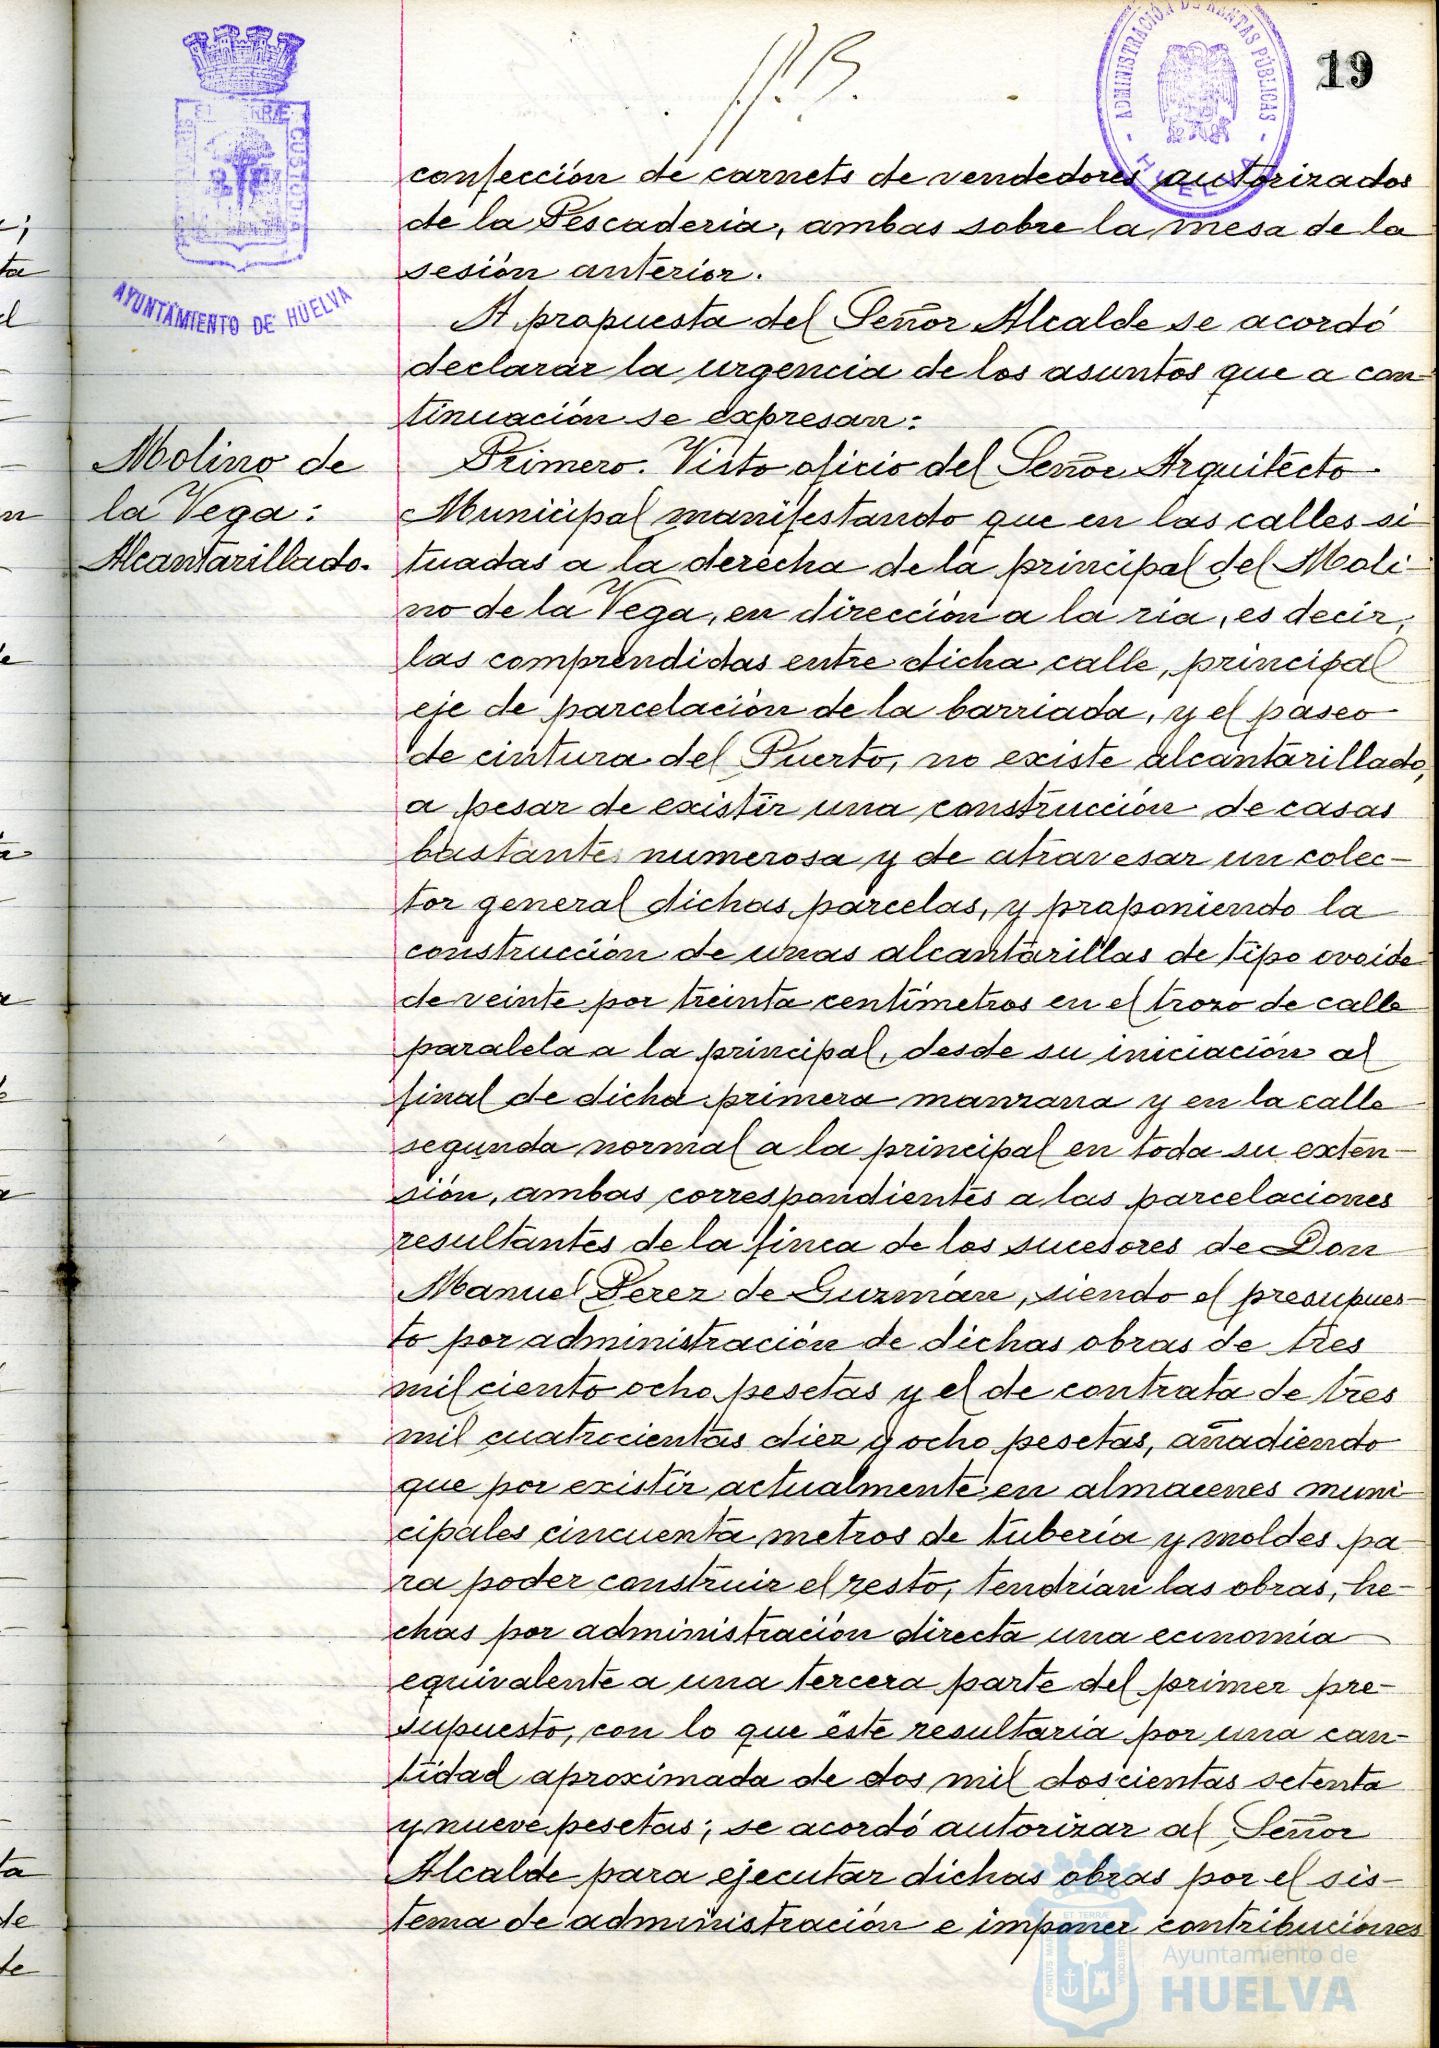 19
ADMINISTRACIÓN DE RENTAS PÚBLICAS
HUELVA
PORTUS MARIS ET TERRÆ CUSTODIA
AYUNTAMIENTO DE HUELVA
confección de carnets de vendedores autorizados
de la Pescaderia, ambas sobre la mesa de la
sesión anterior.
A propuesta del Señor Alcalde se acordó
declarar la urgencia de los asuntos que a con-
tinuación se expresan:
Molino de
la Vega:
Alcantarillado.
Primero. Visto oficio del Señor Arquitecto
Municipal manifestando que en las calles si-
tuadas a la derecha de la principal del Moli-
no de la Vega, en dirección a la ria, es decir,
las comprendidas entre dicha calle, principal
eje de parcelación de la barriada, y el paseo
de cintura del Puerto, no existe alcantarillado,
a pesar de existir una construcción de casas
bastante numerosa y de atravesar un colec-
tor general dichas parcelas, y proponiendo la
construcción de unas alcantarillas de tipo ovoide
de veinte por treinta centímetros en el trozo de calle
paralela a la principal, desde su iniciación al
final de dicha primera manzana y en la calle
segunda normal a la principal en toda su exten-
sión, ambas correspondientes a las parcelaciones
resultantes de la finca de los sucesores de Don
Manuel Perez de Guzmán, siendo el presupues-
to por administración de dichas obras de tres
mil ciento ocho pesetas y el de contrata de tres
mil cuatrocientas diez y ocho pesetas, añadiendo
que por existir actualmente en almacenes muni-
cipales cincuenta metros de tubería y moldes pa-
ra poder construir el resto, tendrían las obras, he-
chas por administración directa una economía
equivalente a una tercera parte del primer pre-
supuesto, con lo que éste resultaría por una can-
tidad aproximada de dos mil doscientas setenta
y nueve pesetas; se acordó autorizar al Señor
Alcalde para ejecutar dichas obras por el sis-
tema de administración e imponer contribuciones
PORTUS MARIS ET TERRÆ CUSTODIA
Ayuntamiento de
HUELVA